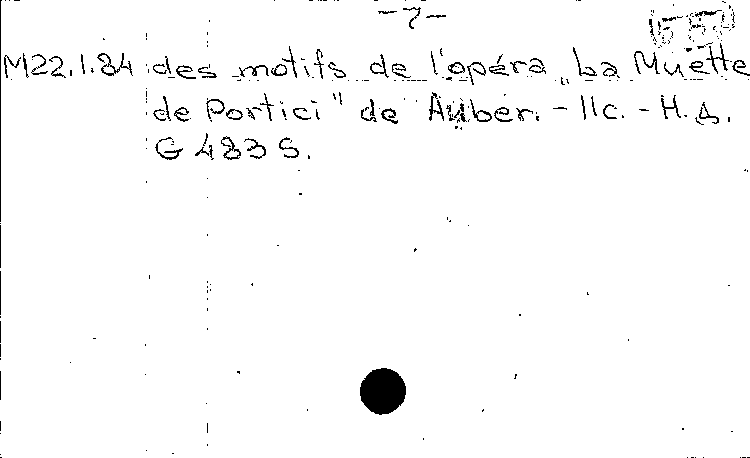 -7-
M22.1.84 des motifs de l'opéra „La Muette
de Portici" de Auber. - 11c. - H. д.
G 483 S.